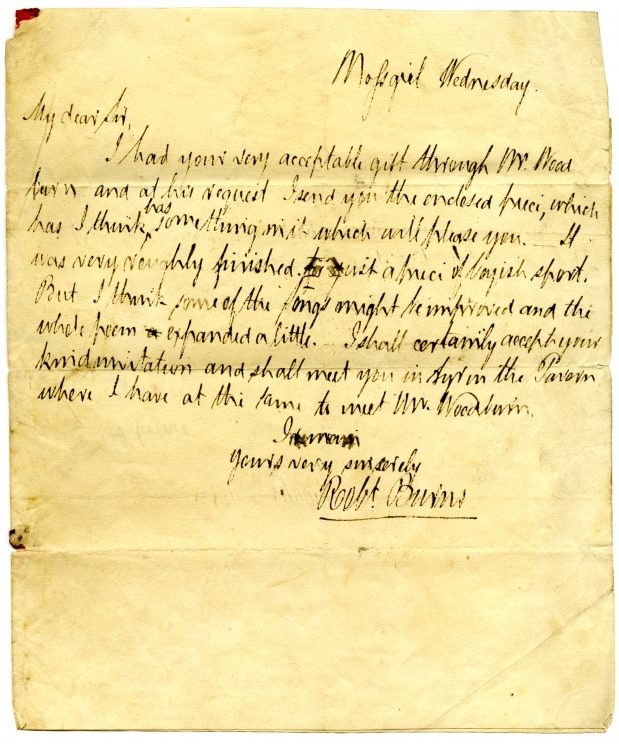 Mossgiel Wednesday.
My dear Sir,
I had your very acceptable gift through Mr. Wood
burn and at his request I send you the enclosed piece, which
has I think, has something in it which will please you. — It
was very roughly finished. just a piece of boyish sport.
But I think some of the songs might be improved and the
whole poem expanded a little. — I shall certainly accept your
kind invitation and shall meet you in Ayr in the Tavern
where I have at the same to meet Mr. Woodburn.
I remain
yours very sincerely
Robt. Burns